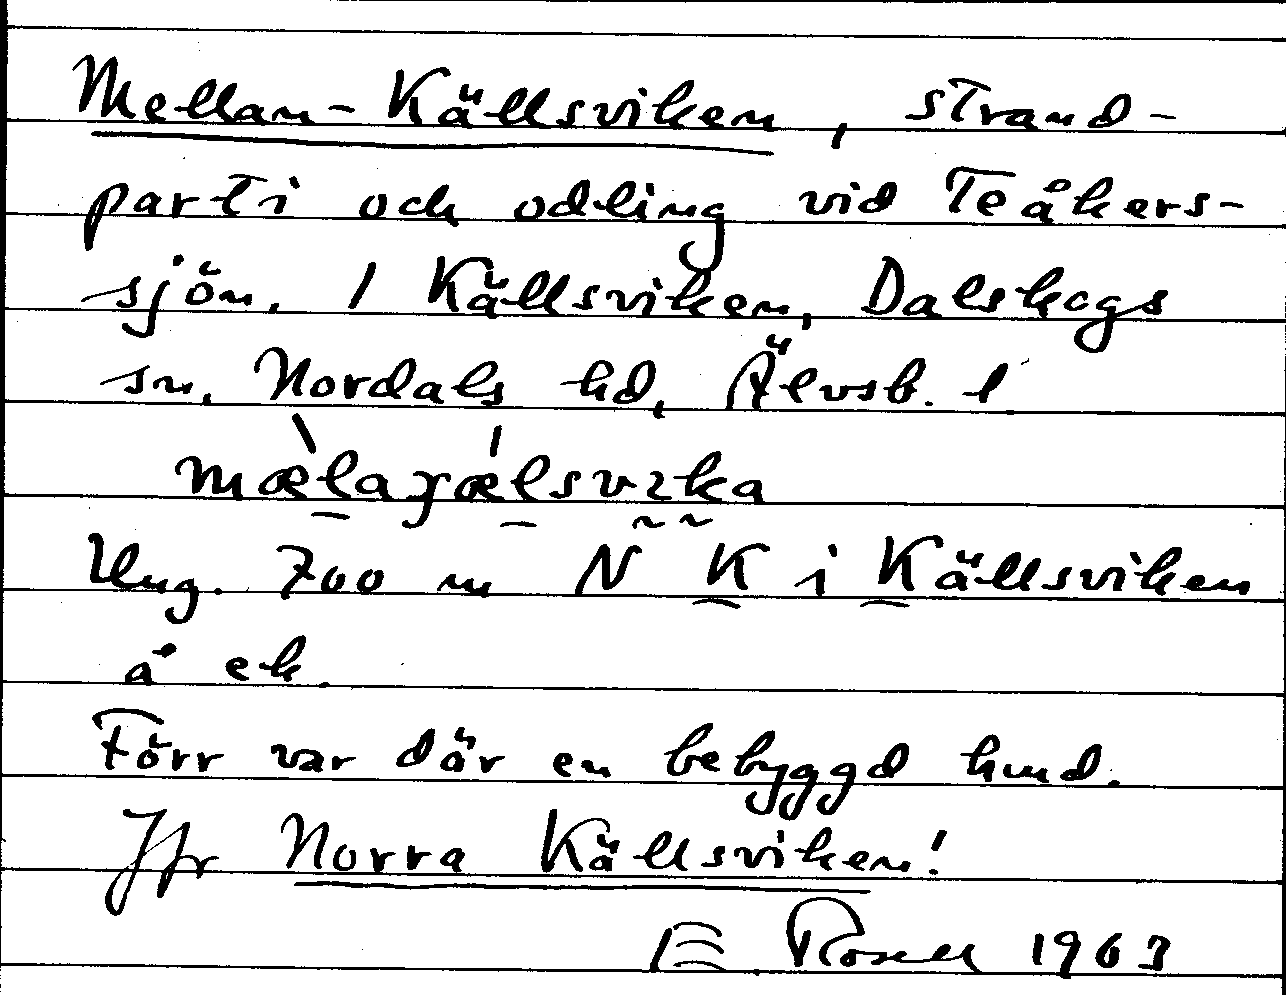 Mellan-Källsviken, strand-
parti och odling vid Teåkers-
sjön. 1 Källsviken, Dalskogs
sn, Nordals hd, Älvsb. l
Ung. 700 m N K i Källsviken
å ek.
Förr var där en bebyggd lund.
Jfr Norra Källsviken!
E Rosell 1963